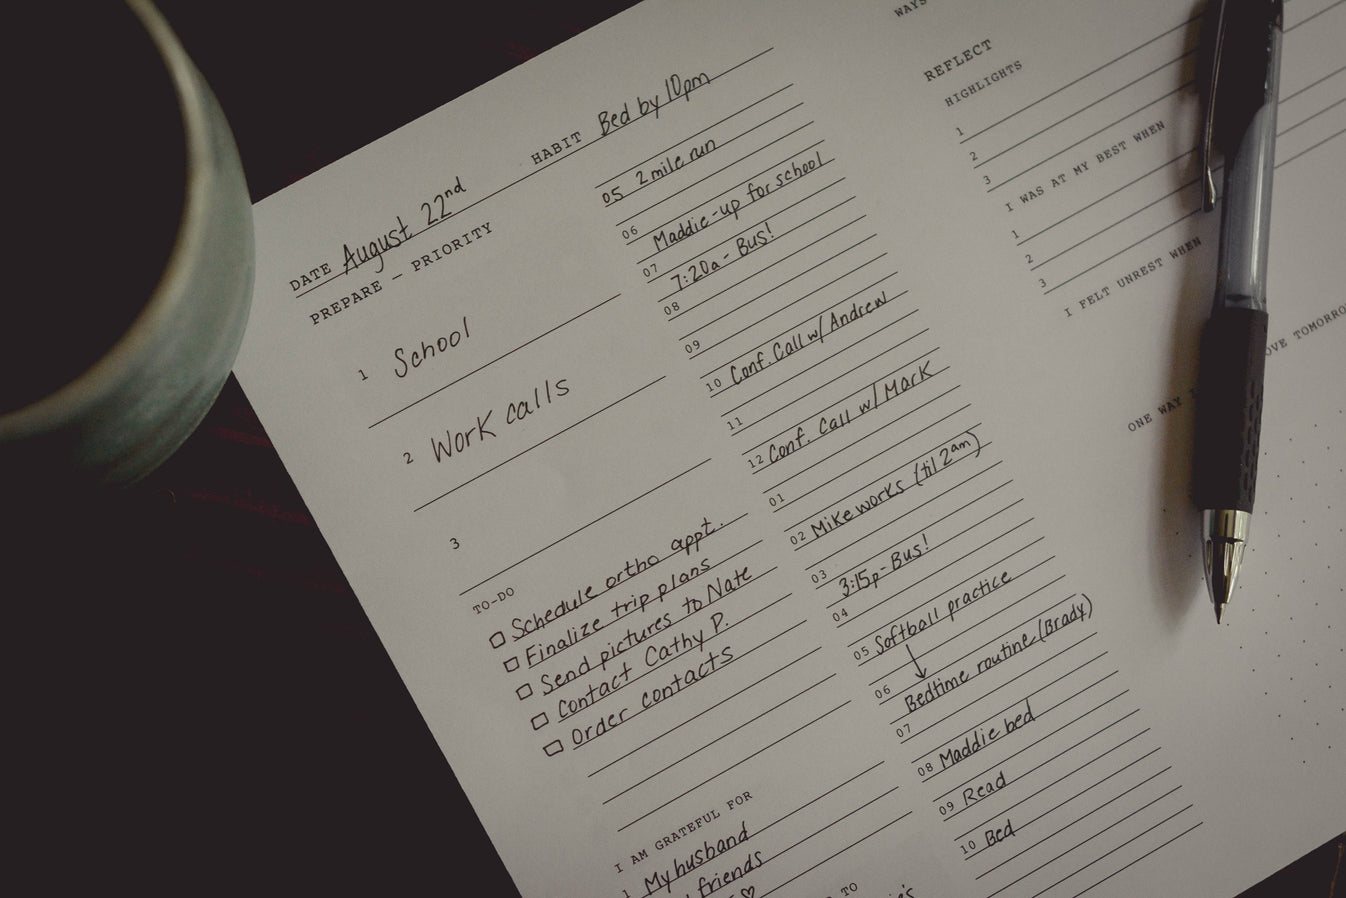 DATE August 22nd
HABIT Bed by 10pm
PREPARE - PRIORITY
1 School
2 Work calls
3
TO-DO
Schedule ortho appt.
Finalize trip plans
Send pictures to Nate
Contact Cathy P.
Order contacts
I AM GRATEFUL FOR
1 My husband
friends
TO
05 2 mile run
06
Maddie-up for school
07
7:20a - Bus!
08
09
10 Conf. Call w/ Andrew
11
12 Conf. Call w/ Mark
01
02 Mike works (til 2am)
03
3:15p - Bus!
04
05 Softball practice
06
Bedtime routine (Brady)
07
08 Maddie bed
09 Read
10 Bed
WAYS
REFLECT
HIGHLIGHTS
1
2
3
I WAS AT MY BEST WHEN
1
2
3
I FELT UNREST WHEN
ONE WAY I
OVE TOMORRO